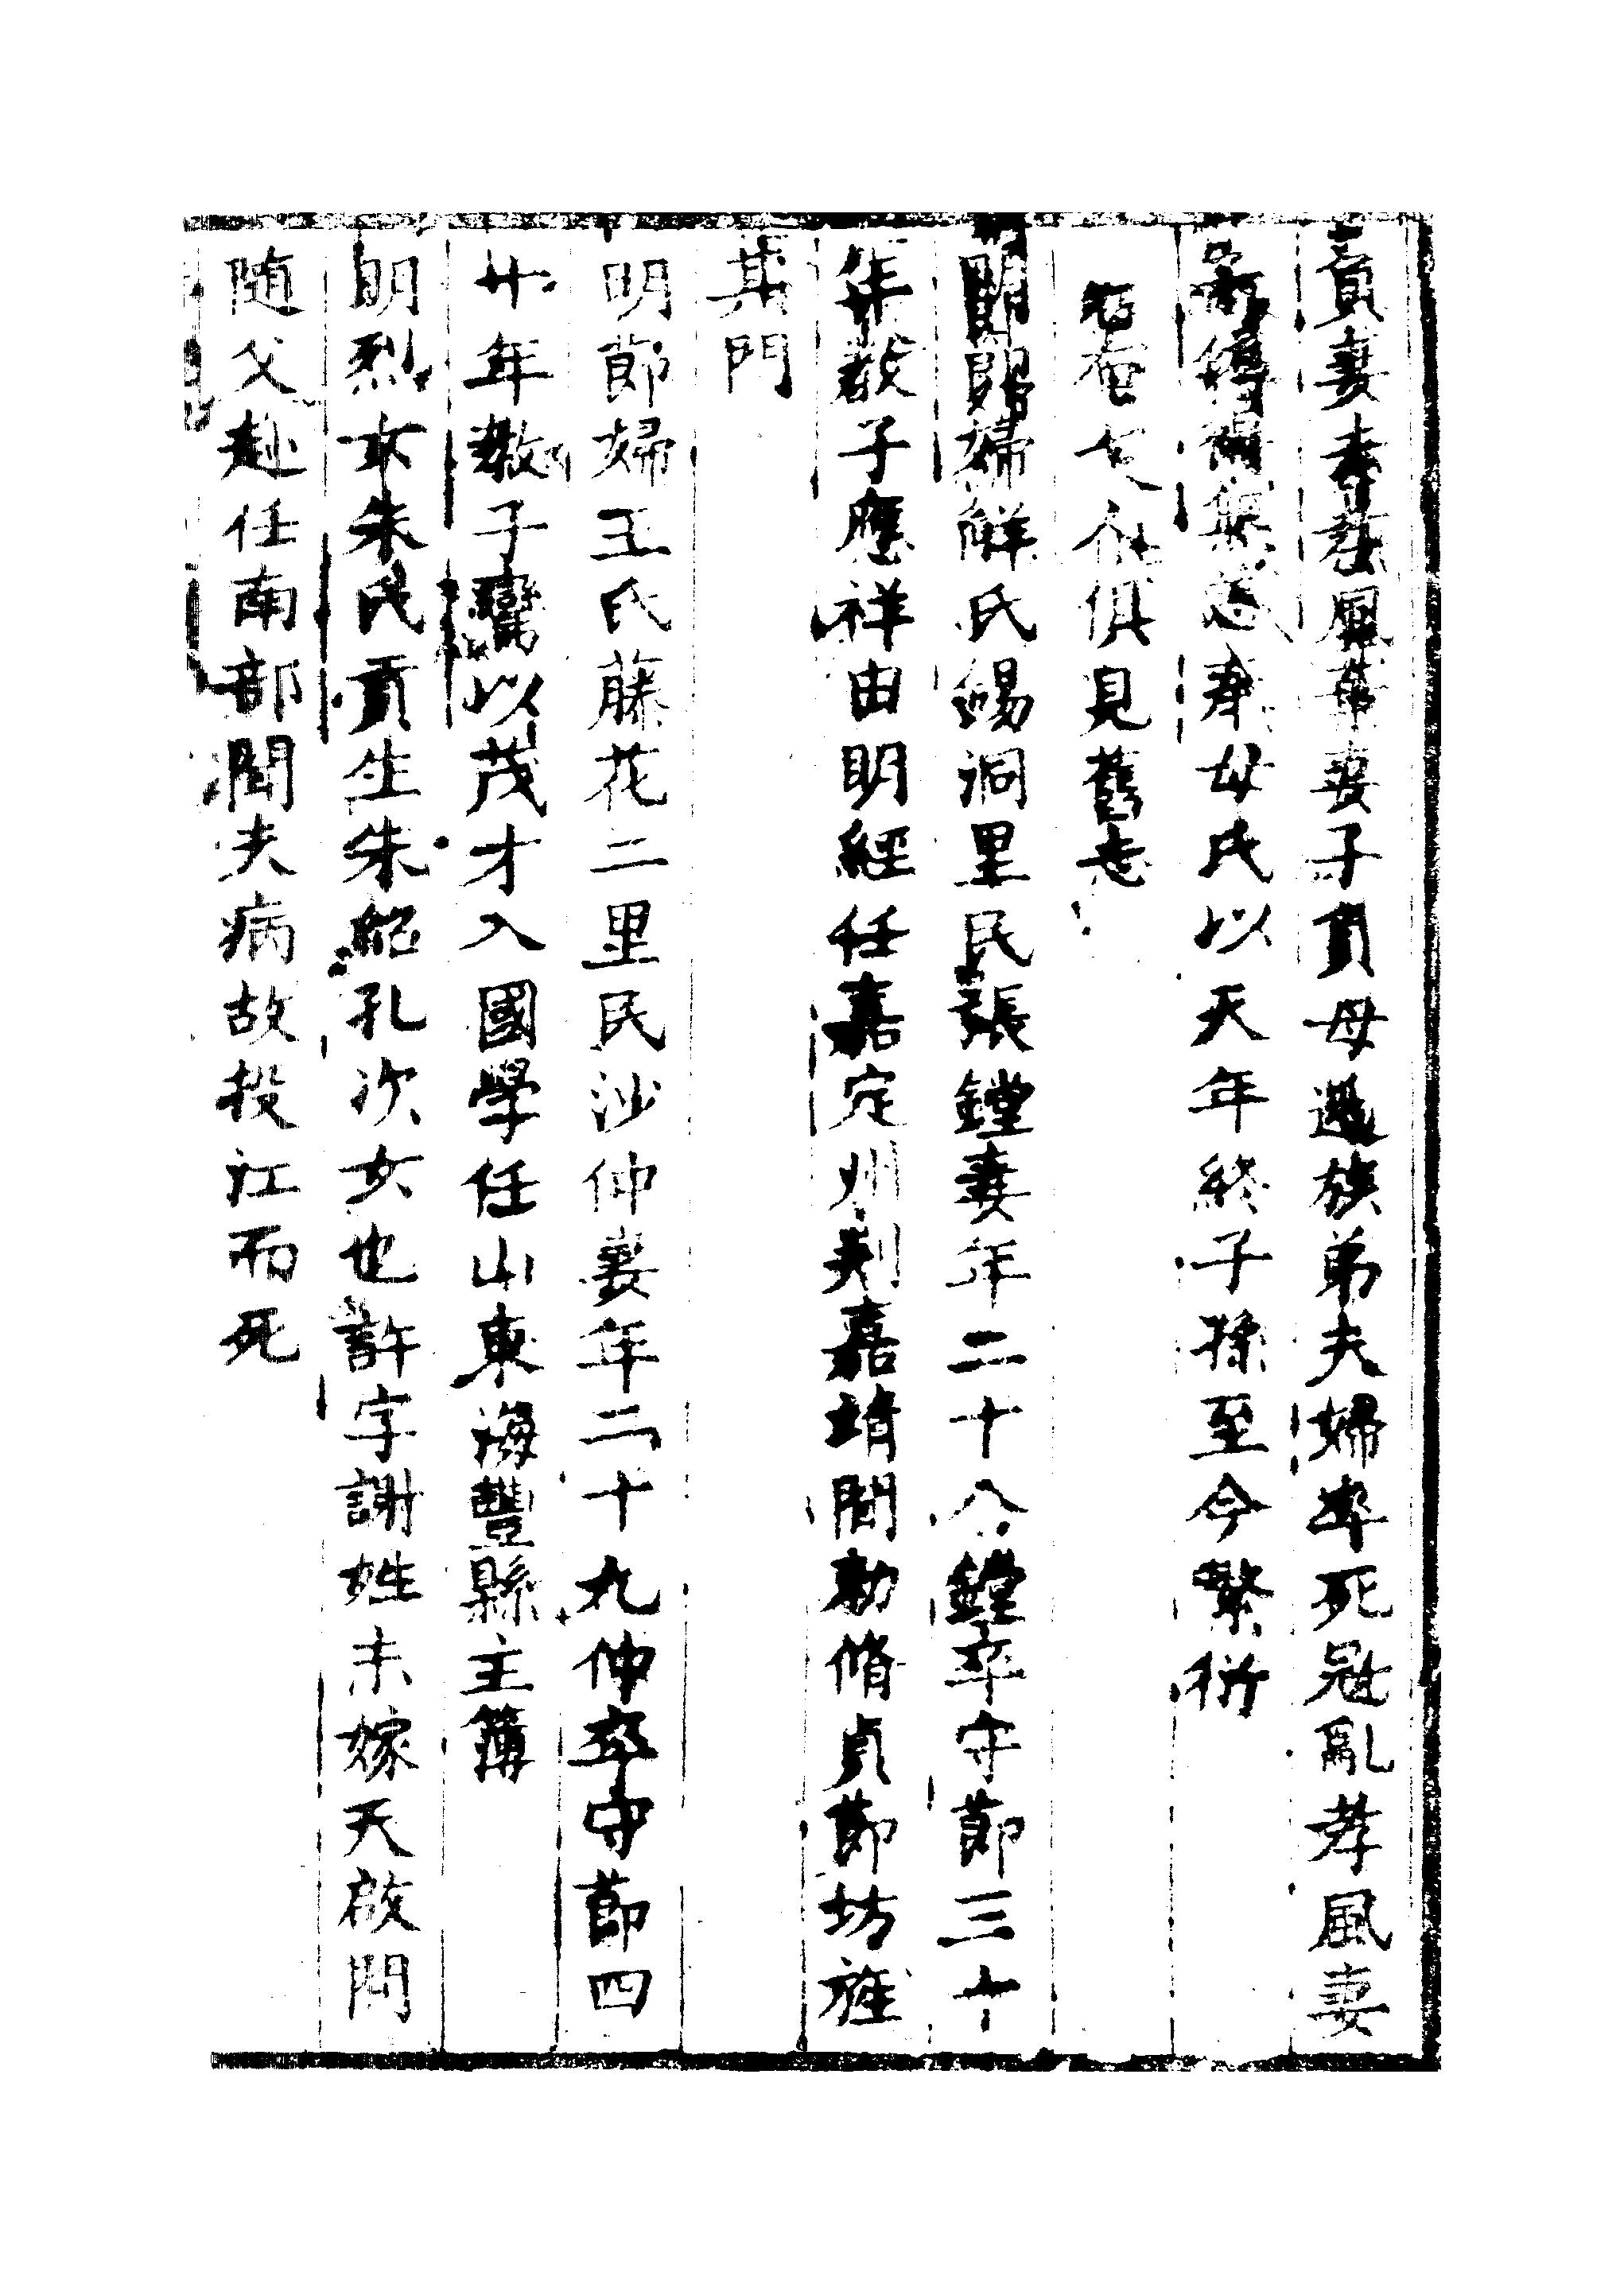 負妻妻 風 妻子負母遇族弟夫婦率死冦亂孝風妻
 母氏以天年終子孫至今繁衍
 俱見舊志
明節婦鮮氏錫洞里民張鏜妻年二十八鏜卒守節三十
年教子應祥由明經任嘉定州判嘉靖間勅脩貞節坊旌
其門
明節婦王氏藤花二里民沙仲妻年二十九仲卒守節四
十年教子鸞以茂才入國學任山東海豐縣主簿
明烈女朱氏貢生朱紹孔次女也許字謝姓未嫁天啟間
随父赴任南部聞夫病故投江而死